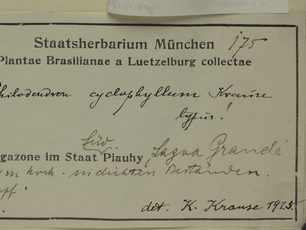 Staatsherbarium München 175
Plantae Brasilianae a Luetzelburg collectae
Philodendron cyclophyllum Krause
typus!
Süd
gazone im Staat Piauhy, Lagoa Grande
m hoch. in dichten Beständen.
det. K. Krause 1925.